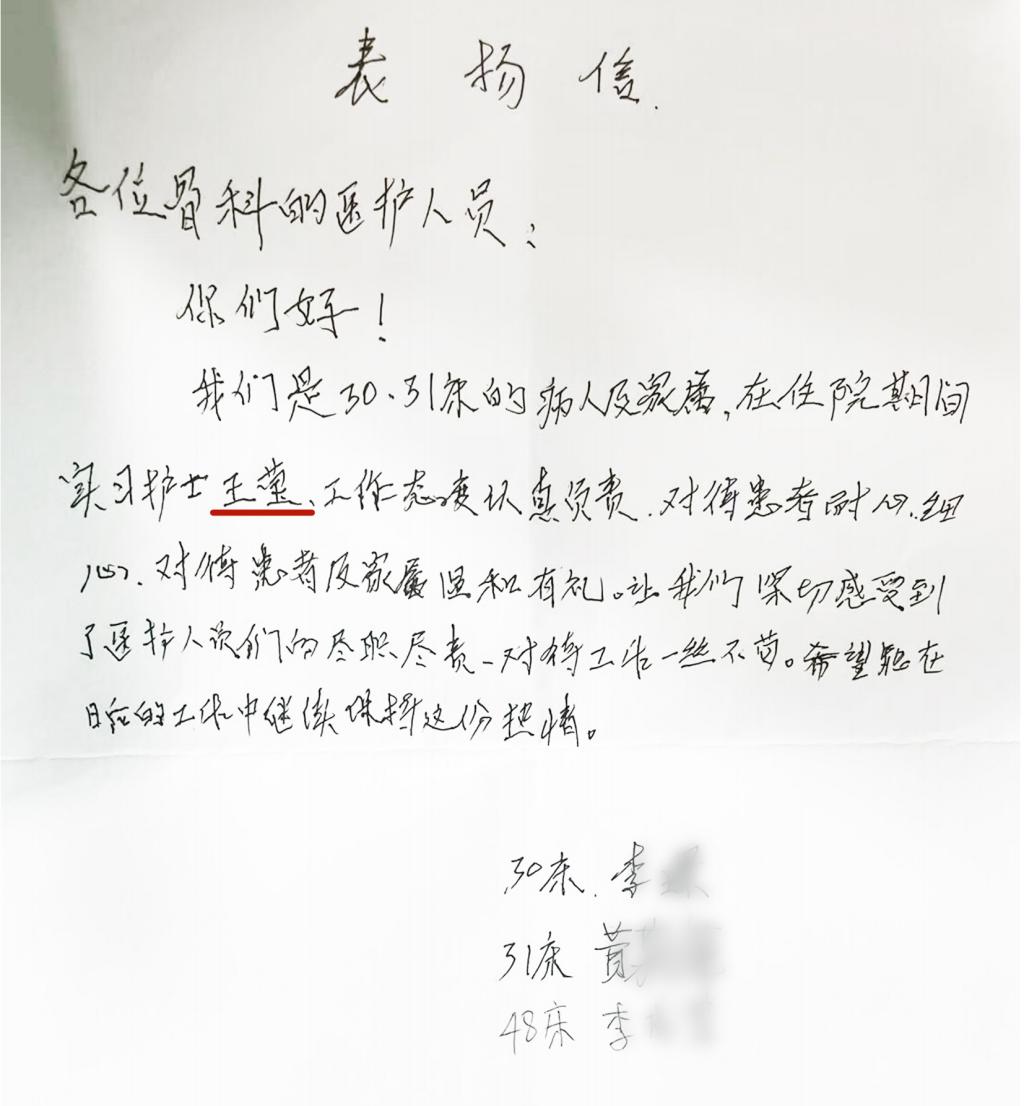 表扬信.
各位骨科的医护人员:
你们好!
我们是30、31床的病人及家属,在住院期间
实习护士王莹、工作态度认真负责、对待患者耐心、细
心、对待患者及家属温和有礼。让我们深切感受到
了医护人员们的尽职尽责、对待工作一丝不苟。希望能在
日后的工作中继续保持这份热情。
30床. 李
31床 黄
48床 李